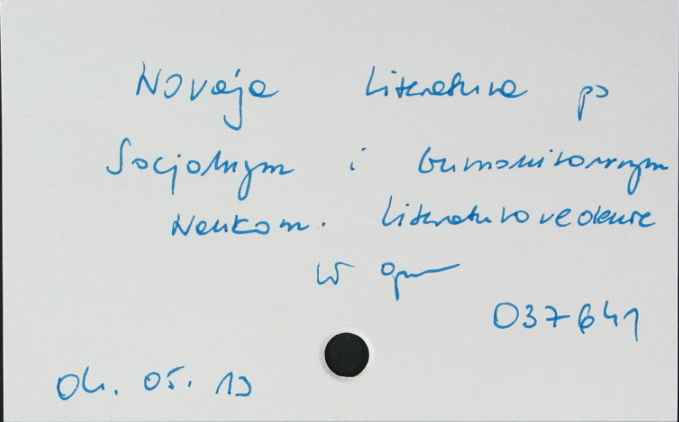 Novaja Literatura po
Socjalnym i Gumanitarnym
Naukam. Literaturovedenie
W opr
037641
04. 05. 13